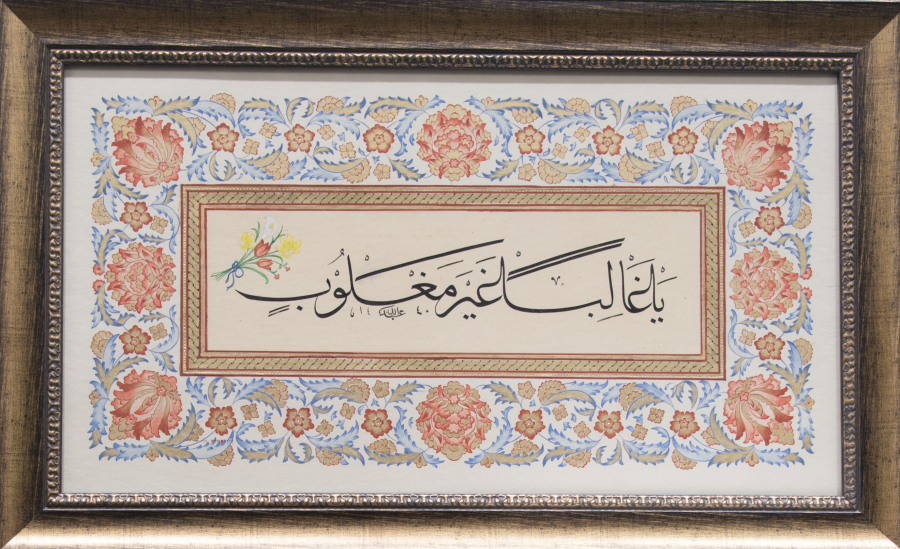 يَا غَالِبًا غَيْرَ مَغْلُوبٍ